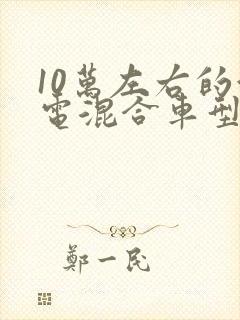 10萬左右的
電混合車型
鄭一民